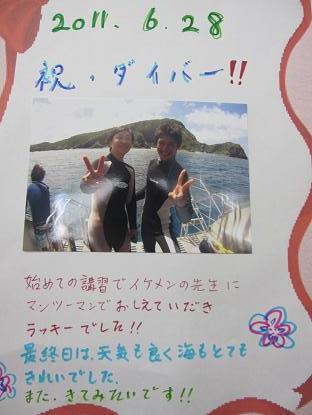 2011. 6.28
祝・ダイバー!!
始めての講習でイケメンの先生に
マンツーマンでおしえていだき
ラッキーでした!!
最終日は、天気も良く海もとても
きれいでした。
また、きてみたいです!!